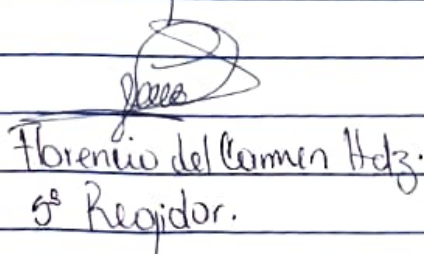 Florencio del Carmen Hdz.
5º Regidor.